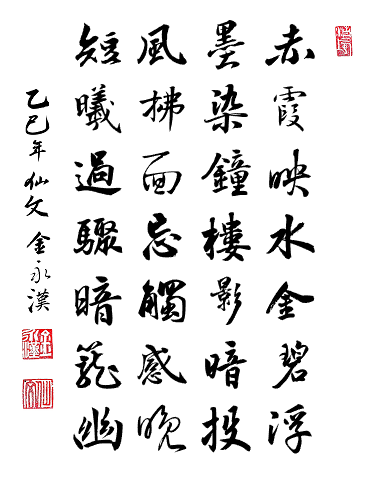 赤霞映水金碧浮
墨染鐘樓影暗投
風拂面忘觸感晚
短曦過驟暗籠幽
乙巳年仙文金永漢